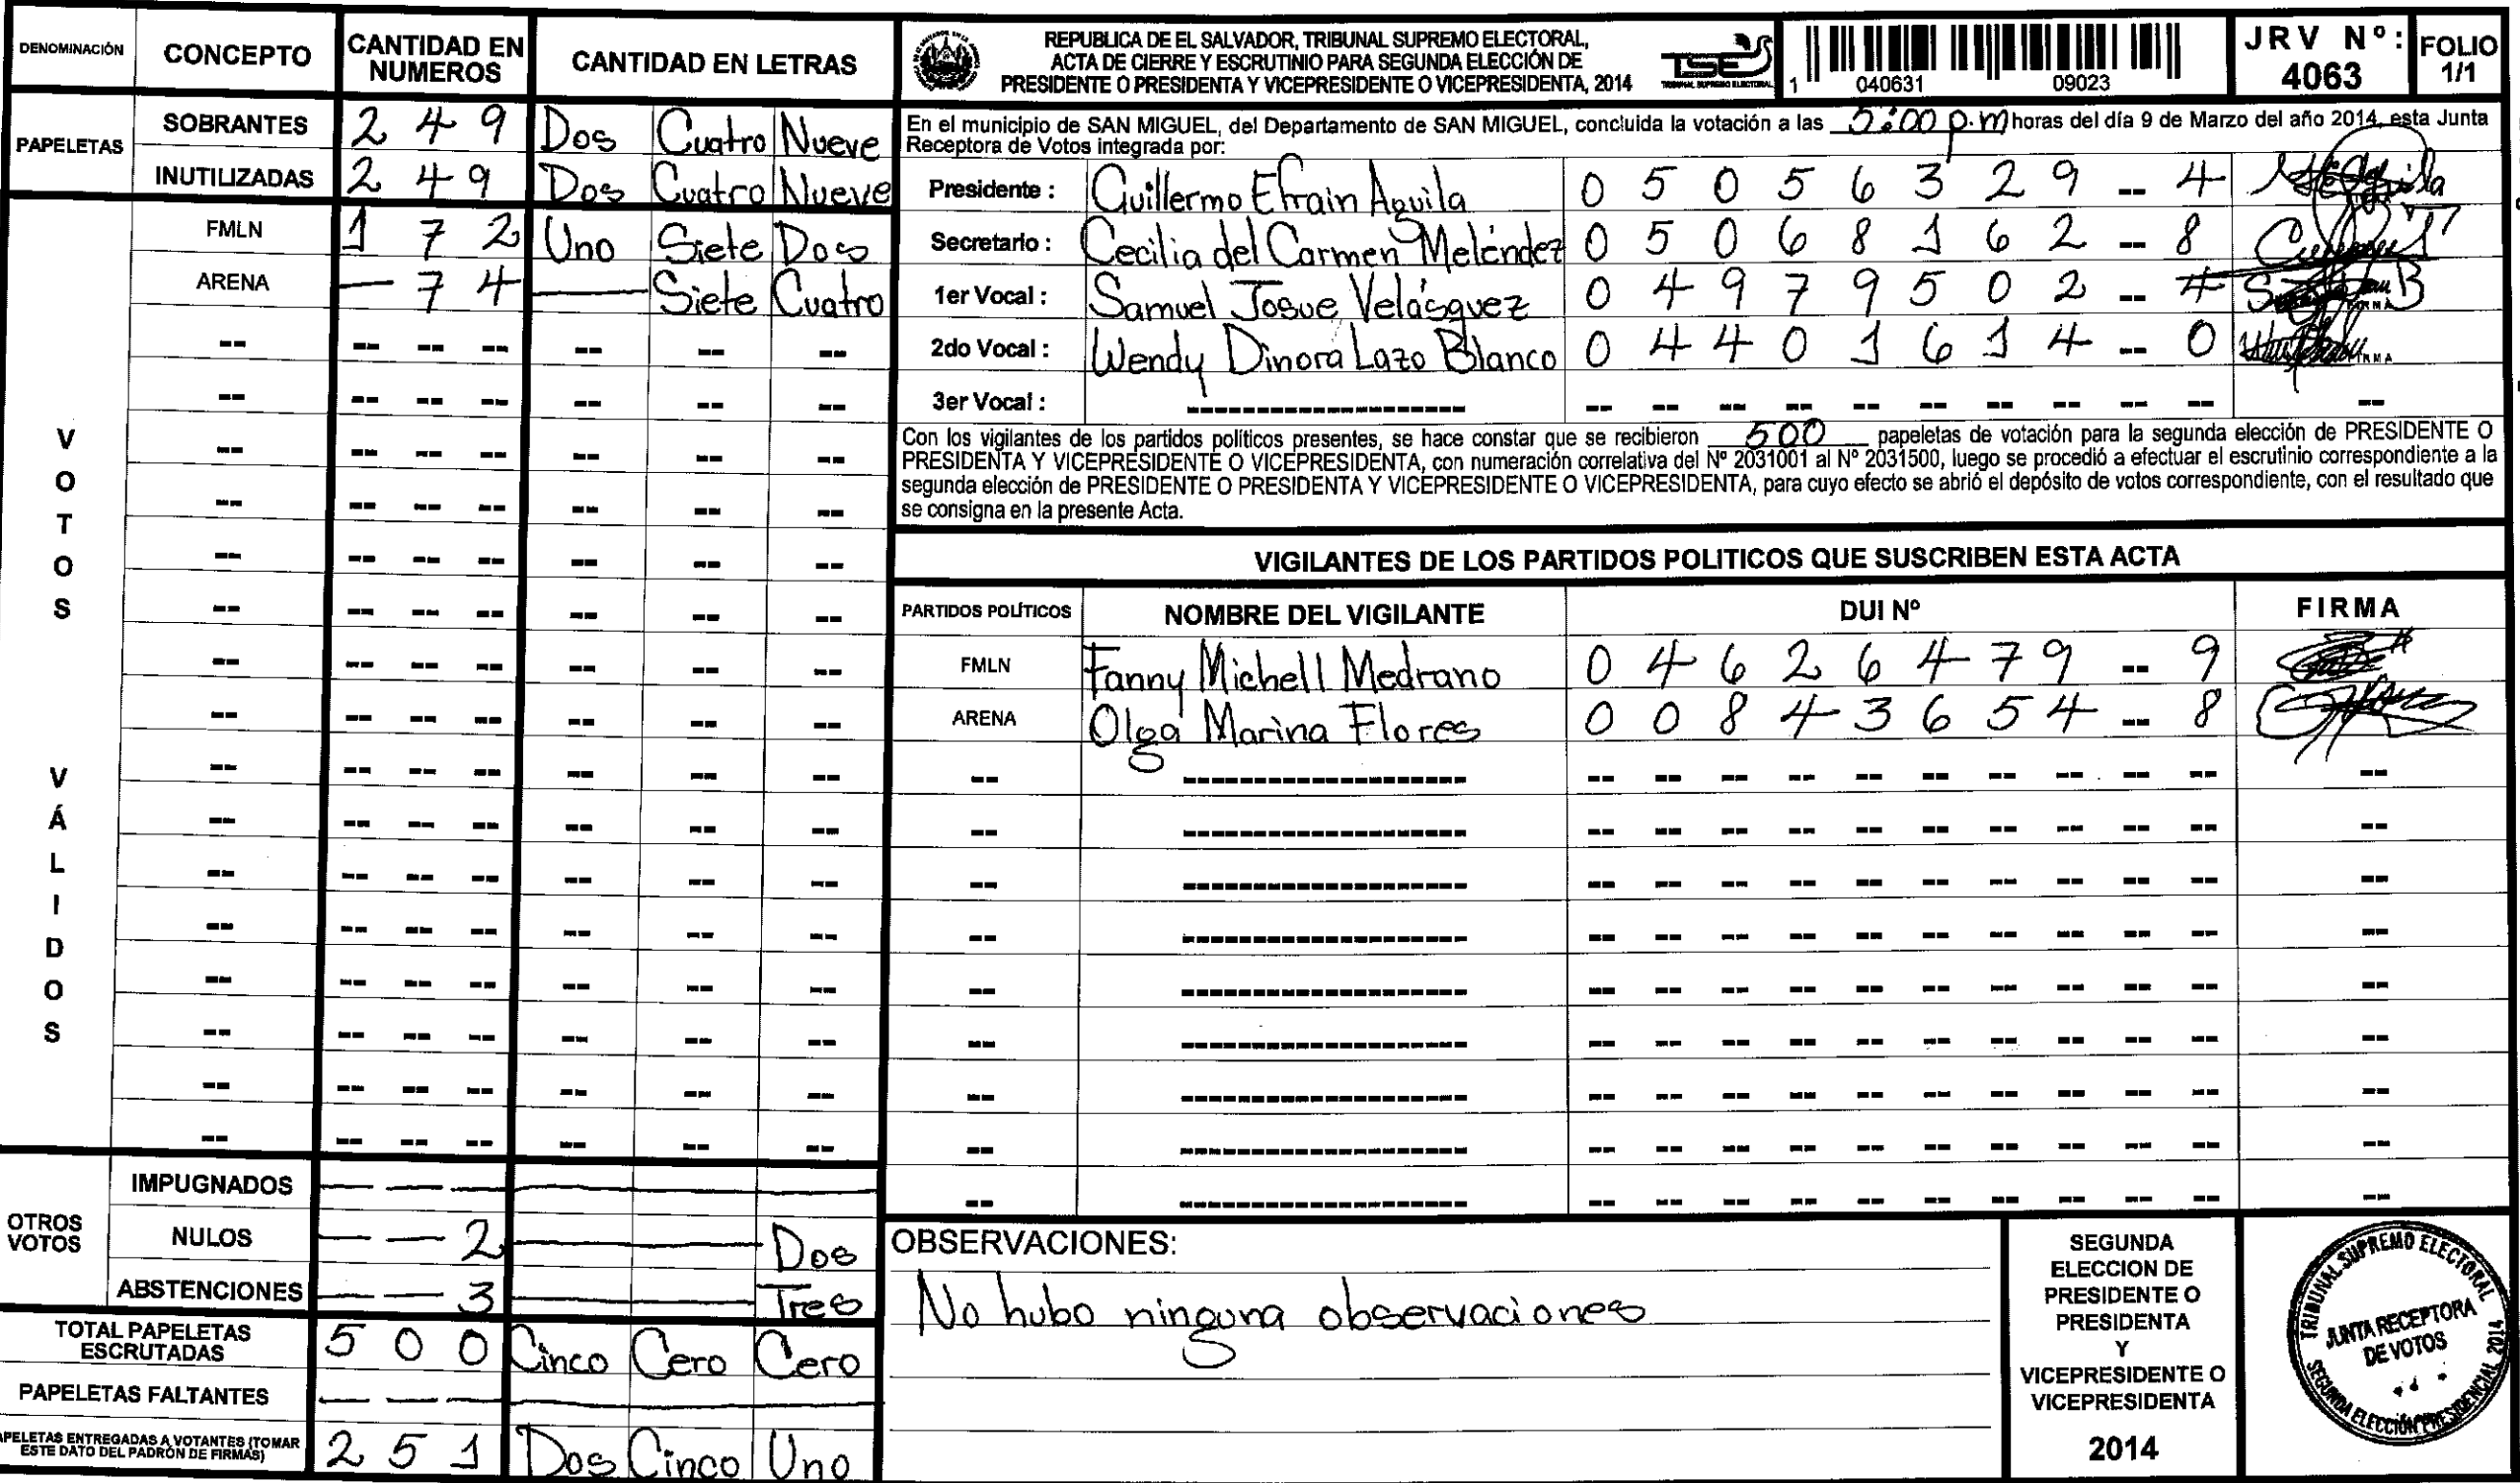 DENOMINACIÓN CONCEPTO CANTIDAD EN NUMEROS CANTIDAD EN LETRAS
PAPELETAS
SOBRANTES 2 4 9 Dos Cuatro Nueve
INUTILIZADAS 2 4 9 Dos Cuatro Nueve
VOTOS VÁLIDOS
FMLN 1 7 2 Uno Siete Dos
ARENA — 7 4 — Siete Cuatro
OTROS VOTOS
IMPUGNADOS — — —
NULOS — — 2 — Dos
ABSTENCIONES — — 3 — Tres
TOTAL PAPELETAS ESCRUTADAS 5 0 0 Cinco Cero Cero
PAPELETAS FALTANTES — — —
APELETAS ENTREGADAS A VOTANTES (TOMAR
ESTE DATO DEL PADRÓN DE FIRMAS) 2 5 1 Dos Cinco Uno
REPUBLICA DE EL SALVADOR, TRIBUNAL SUPREMO ELECTORAL,
ACTA DE CIERRE Y ESCRUTINIO PARA SEGUNDA ELECCIÓN DE
PRESIDENTE O PRESIDENTA Y VICEPRESIDENTE O VICEPRESIDENTA, 2014
TSE
TRIBUNAL SUPREMO ELECTORAL
1 040631 09023
JRV Nº: 4063
FOLIO 1/1
En el municipio de SAN MIGUEL, del Departamento de SAN MIGUEL, concluida la votación a las 5:00 p.m horas del día 9 de Marzo del año 2014, esta Junta
Receptora de Votos integrada por:
Presidente : Guillermo Efrain Aguila 0 5 0 5 6 3 2 9 -- 4
Secretario : Cecilia del Carmen Meléndez 0 5 0 6 8 1 6 2 -- 8
1er Vocal : Samuel Josue Velásquez 0 4 9 7 9 5 0 2 -- 7
2do Vocal : Wendy Dinora Lazo Blanco 0 4 4 0 1 6 1 4 -- 0
3er Vocal :
Con los vigilantes de los partidos políticos presentes, se hace constar que se recibieron 500 papeletas de votación para la segunda elección de PRESIDENTE O
PRESIDENTA Y VICEPRESIDENTE O VICEPRESIDENTA, con numeración correlativa del Nº 2031001 al Nº 2031500, luego se procedió a efectuar el escrutinio correspondiente a la
segunda elección de PRESIDENTE O PRESIDENTA Y VICEPRESIDENTE O VICEPRESIDENTA, para cuyo efecto se abrió el depósito de votos correspondiente, con el resultado que
se consigna en la presente Acta.
VIGILANTES DE LOS PARTIDOS POLITICOS QUE SUSCRIBEN ESTA ACTA
PARTIDOS POLÍTICOS NOMBRE DEL VIGILANTE DUI Nº FIRMA
FMLN Fanny Michell Medrano 0 4 6 2 6 4 7 9 -- 9
ARENA Olga Marina Flores 0 0 8 4 3 6 5 4 -- 8
OBSERVACIONES:
No hubo ninguna observaciones
SEGUNDA
ELECCION DE
PRESIDENTE O
PRESIDENTA
Y
VICEPRESIDENTE O
VICEPRESIDENTA
2014
TRIBUNAL SUPREMO ELECTORAL
JUNTA RECEPTORA
DE VOTOS
SEGUNDA ELECCIÓN PRESIDENCIAL 2014